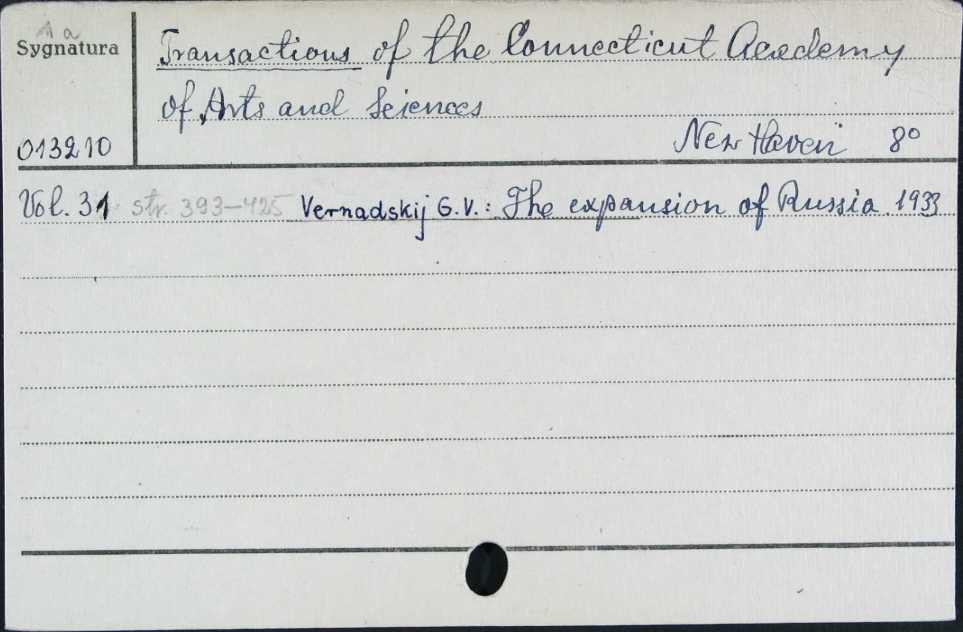 1a
Sygnatura
Transactions of the Connecticut Academy
of Arts and Sciences
013210
New Haven 8°
Vol. 31 str. 393-425 Vernadskij G.V.: The expansion of Russia. 1933